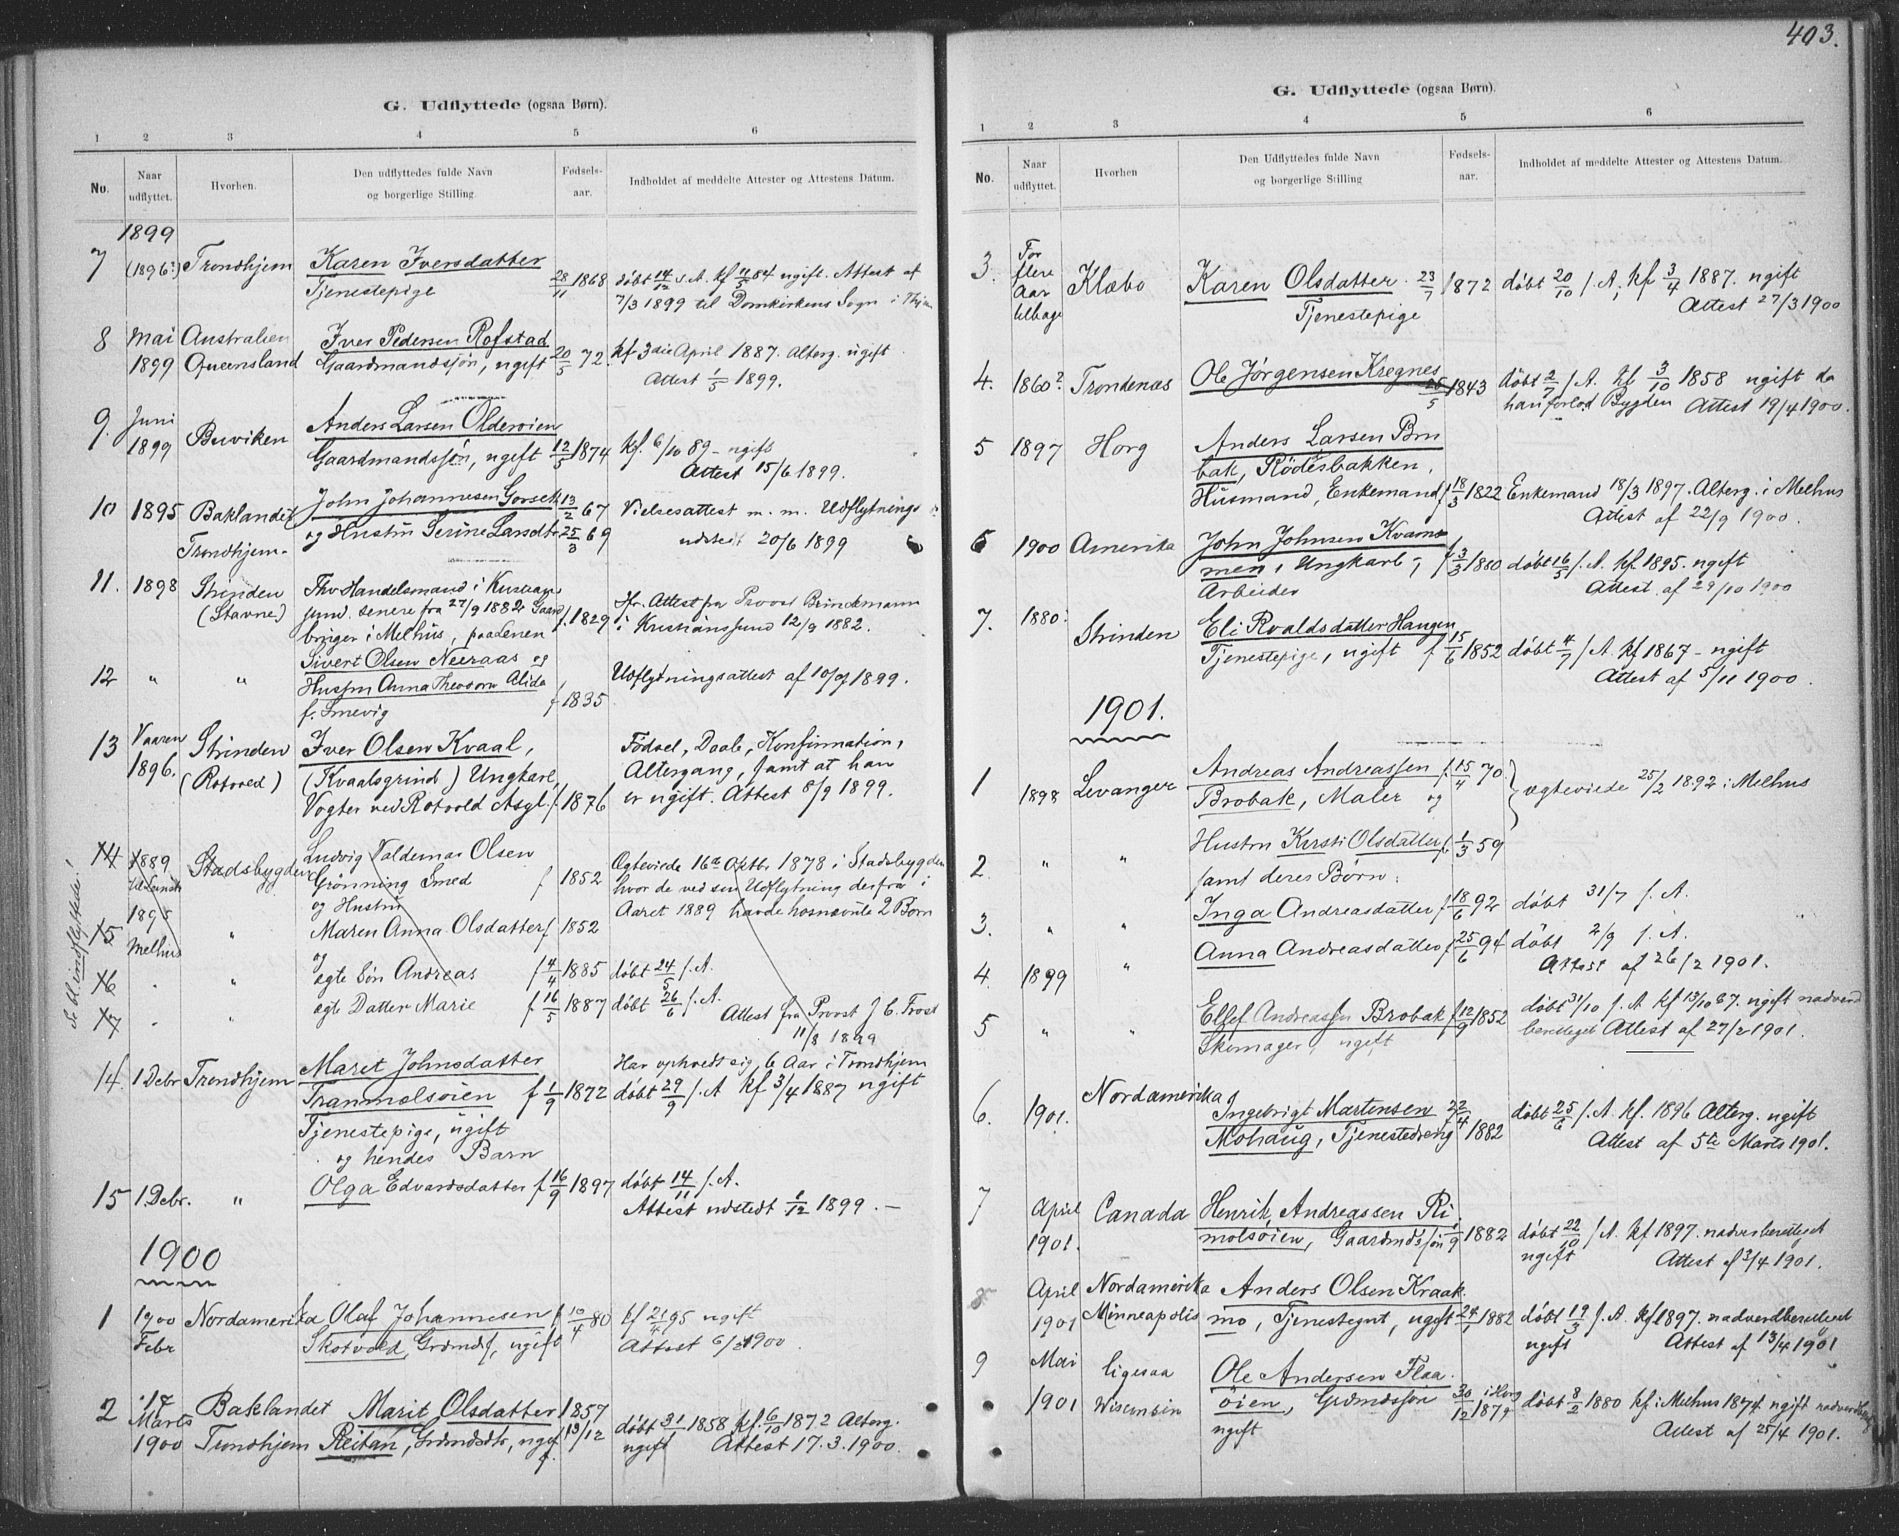 403.
G. Udflyttede (ogsaa Børn).
1 2 3 4 5 6
No. Naar udflyttet. Hvorhen. Den udflyttedes fulde Navn og borgerlige Stilling. Fødselsaar. Indholdet af meddelte Attester og Attestens Datum.
1899
7 (1896?) Trondhjem Karen Iversdatter 28/11 1868 døbt 14/12 s. A. kf 11/5 84 ugift. Attest af
Tjenestepige 7/3 1899 til Domkirkens Sogn i Thjem
8 Mai Australien Iver Pedersen Rofstad
1899 Queensland Gaardmandssøn, ugift 20/5 72. kf 3die April 1887. Alterg. ugift
Attest 1/5 1899.
9. Juni Anders Larsen Olderøien
1899 Buviken Gaardmandssøn, ugift 12/5 1874 kf. 6/10 89 - ugift
Attest 15/6 1899.
10 1895 Baklandet John Johannesen Gorseth 13/2 67 Vielsesattest m. m. Udflytnings
Trondhjem og Hustru Serine Larsdtr 25/3 69 udstedt 20/6 1899
11. 1898 Strinden Fhv Handelsmand i Kristian
(Stavne) sund. senere fra 27/9 1882 Gaard f. 1829 Hr. Attest fra Provst Brinchmann
bruger i Melhus, paa Lenen i Kristianssund 12/9 1882.
Sivert Olsen Neeraas og
12 " " Hustru Anna Theodora Alida f 1835 Udflytningsattest af 10/9 1899.
f. Smevig
13 Vaaren Strinden Iver Olsen Kvaal, Fødsel, Daab, Konfirmation,
1896. (Rotvold) (Kvaalsgrind) Ungkarl, Altergang, samt at han
Vogter ved Rotvold Asyl. f. 1876 er ugift. Attest 8/9 1899.
S. bl. indflyttede!
14 1889 Stadsbygden Ludvig Valdemar Olsen Egteviede 16de Oktbr 1878 i Stadsbygden
Grønning Smed f 1852 hvor de ved sin Udflytning derfra i
1895 og Hustru Aaret 1889 havde hosnævnte 2 Børn
15 Melhus " Maren Anna Olsdatter f 1852
og
16 " " egte Søn Andreas f 4/4 1885 døbt 24/5 s. A.
17 " " egte Datter Marie f 16/5 1887 døbt 26/6 s. A.
Attest fra Provst J C. Frost
11/8 1899
14. 1 Debr Trondhjem Maret Johnsdatter Har opholdt sig 6 Aar i Trondhjem
Tranmælsøien f 1/9 1872 døbt 29/9 s. A kf 3/4 1887 ugift
Tjenestepige, ugift
og hendes Barn
15 1 Debr. " Olga Edvardsdatter f 16/9 1897 døbt 14/11 s. A.
Attest udstedt 1/12 1899. -
1900
1 1900 Nordamerika Olaf Johannesen f 10/4 80 kf 21/4 95 ugift
Febr Skotvold, Grdmds, ugift Attest 6/2 1900
2 17 Baklandet Marit Olsdatter 1857
Marts Trondhjem Reitan, Grdmdsdtr, ugif 13/12 døbt 31/1 1858 kf. 6/10 1872 Alterg.
1900 ugift Attest 17.3.1900.
G. Udflyttede (ogsaa Børn).
1 2 3 4 5 6
No. Naar udflyttet. Hvorhen Den Udflyttedes fulde Navn og borgerlige Stilling Fødselsaar. Indholdet af meddelte Attester og Attestens Datum.
3. For flere Aar tilbage Klæbo Karen Olsdatter 23/7 1872 døbt 20/10 s. A, kf 3/4 1887. ugift
Tjenestepige Attest 27/3 1900
4. 1860? Trondenæs Ole Jørgensen Kregnes 25/5 1843 døbt 2/7 s. A. kf 3/10 1858 ugift da
han forlod Bygden Attest 19/4 1900.
5 1897 Horg Anders Larsen Bru
bak, Rødesbakken,
Husmand, Enkemand f 18/3 1822 Enkemand 18/3 1897. Alterg. i Melhus
Attest af 22/9 1900.
6 1900 Amerika John Johnsen Kvam
men, Ungkarl, f 3/3 1880 døbt 16/5 s. A. kf. 1895. ugift
Arbeider Attest af 29/10 1900
7. 1880? Strinden Eli Roaldsdatter Haugen
Tjenestepige, ugift f 15/6 1852 døbt 4/7 s. A. kf 1867 - ugift
Attest af 5/11 1900.
1901.
1 1898 Levanger Andreas Andreassen f. 15/4 70
Brobak, Maler og ægteviede 25/2 1892 i Melhus
2. " " Hustru Kirsti Olsdatter f 1/3 59
samt deres Børn:
3. " " Inga Andreasdatter f 18/6 92 døbt 31/7 s. A.
4 1899 " Anna Andreasdatter f 25/6 94 døbt 2/9 s. A.
Attest af 26/2 1901.
5 " " Ellef Andreassen Brobak f 12/9 1852 døbt 31/10 s. A kf 13/10 67. ugift nadverd
Skomager, ugift berettiget Attest af 27/2 1901.
6. 1901. Nordamerika Ingebrigt Martensen 22/4 1882 døbt 25/6 s. A. kf. 1896 Alterg. ugift
Mohaug, Tjenestedreng Attest af 5te Marts 1901.
7 April Canada Henrik Andreassen Ri
1901. molsøien, Gaardmdssøn 1/9 1882 døbt 22/10 s. A. kf 1897. nadverberettiget
ugift Attest af 3/4 1901.
8 April Nordamerika Anders Olsen Kraak
1901 Minneapolis mo, Tjenestegut, ugift 24/1 1882 døbt 19/3 s. A. kf 1897. nadverdberettiget
ugift Attest af 13/4 1901
9 Mai ligesaa Ole Andersen Flaa
1901 Wisconsin øien, Grdmdssøn 30/12 i Horg 1879 døbt 8/2 1880 kf i Melhus 1874 ugift
ugift Attest af 25/4 1901.